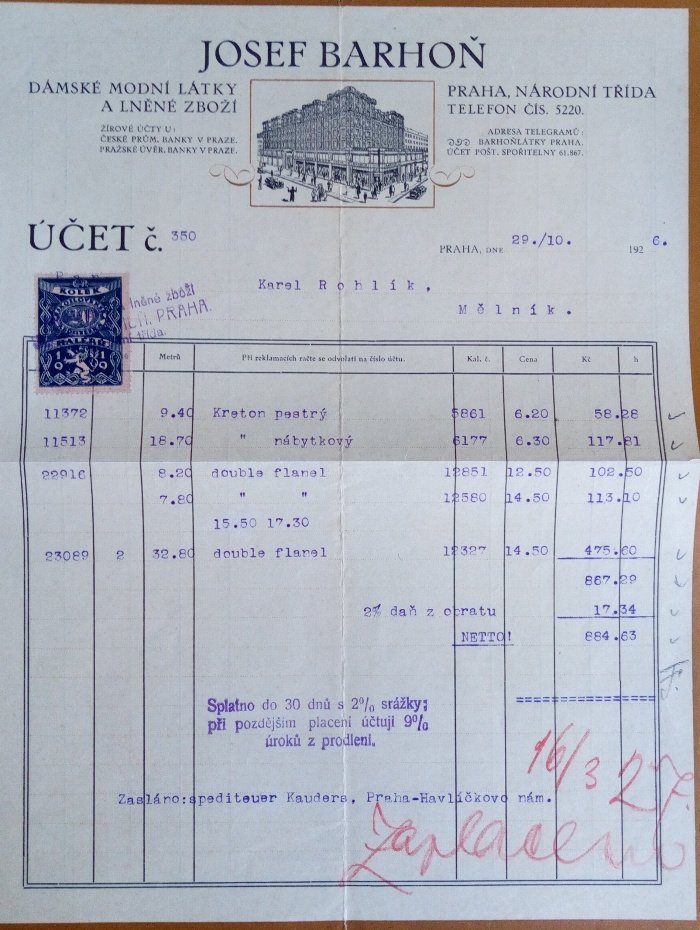 JOSEF BARHOŇ
DÁMSKÉ MODNÍ LÁTKY
A LNĚNÉ ZBOŽÍ
ŽÍROVÉ ÚČTY U:
ČESKÉ PRŮM. BANKY V PRAZE.
PRAŽSKÉ ÚVĚR. BANKY V PRAZE.
PRAHA, NÁRODNÍ TŘÍDA
TELEFON ČÍS. 5220.
ADRESA TELEGRAMŮ:
BARHOŇLÁTKY PRAHA.
ÚČET POŠT. SPOŘITELNY 61.867.
ÚČET č. 350
PRAHA, DNE 29./10. 192 6.
Karel Rohlík,
Mělník.
KOLEK
HALÉŘŮ
1919
lněné zboží
PRAHA.
třída.
Metrů PŘI reklamacích račte se odvolati na číslo účtu. Kal. č. Cena Kč h
11372 9.40 Kreton pestrý 5861 6.20 58.28
11513 18.70 " nábytkový 6177 6.30 117.81
22916 8.20 double flanel 12851 12.50 102.50
7.80 " " 12580 14.50 113.10
15.50 17.30
23089 2 32.80 double flanel 12327 14.50 475.60
867.29
2% daň z obratu 17.34
NETTO! 884.63
Splatno do 30 dnů s 2% srážky;
při pozdějším placení účtuji 9%
úroků z prodlení.
16/3 27.
Zasláno:spediteuer Kauders, Praha-Havlíčkovo nám.
Zaplaceno